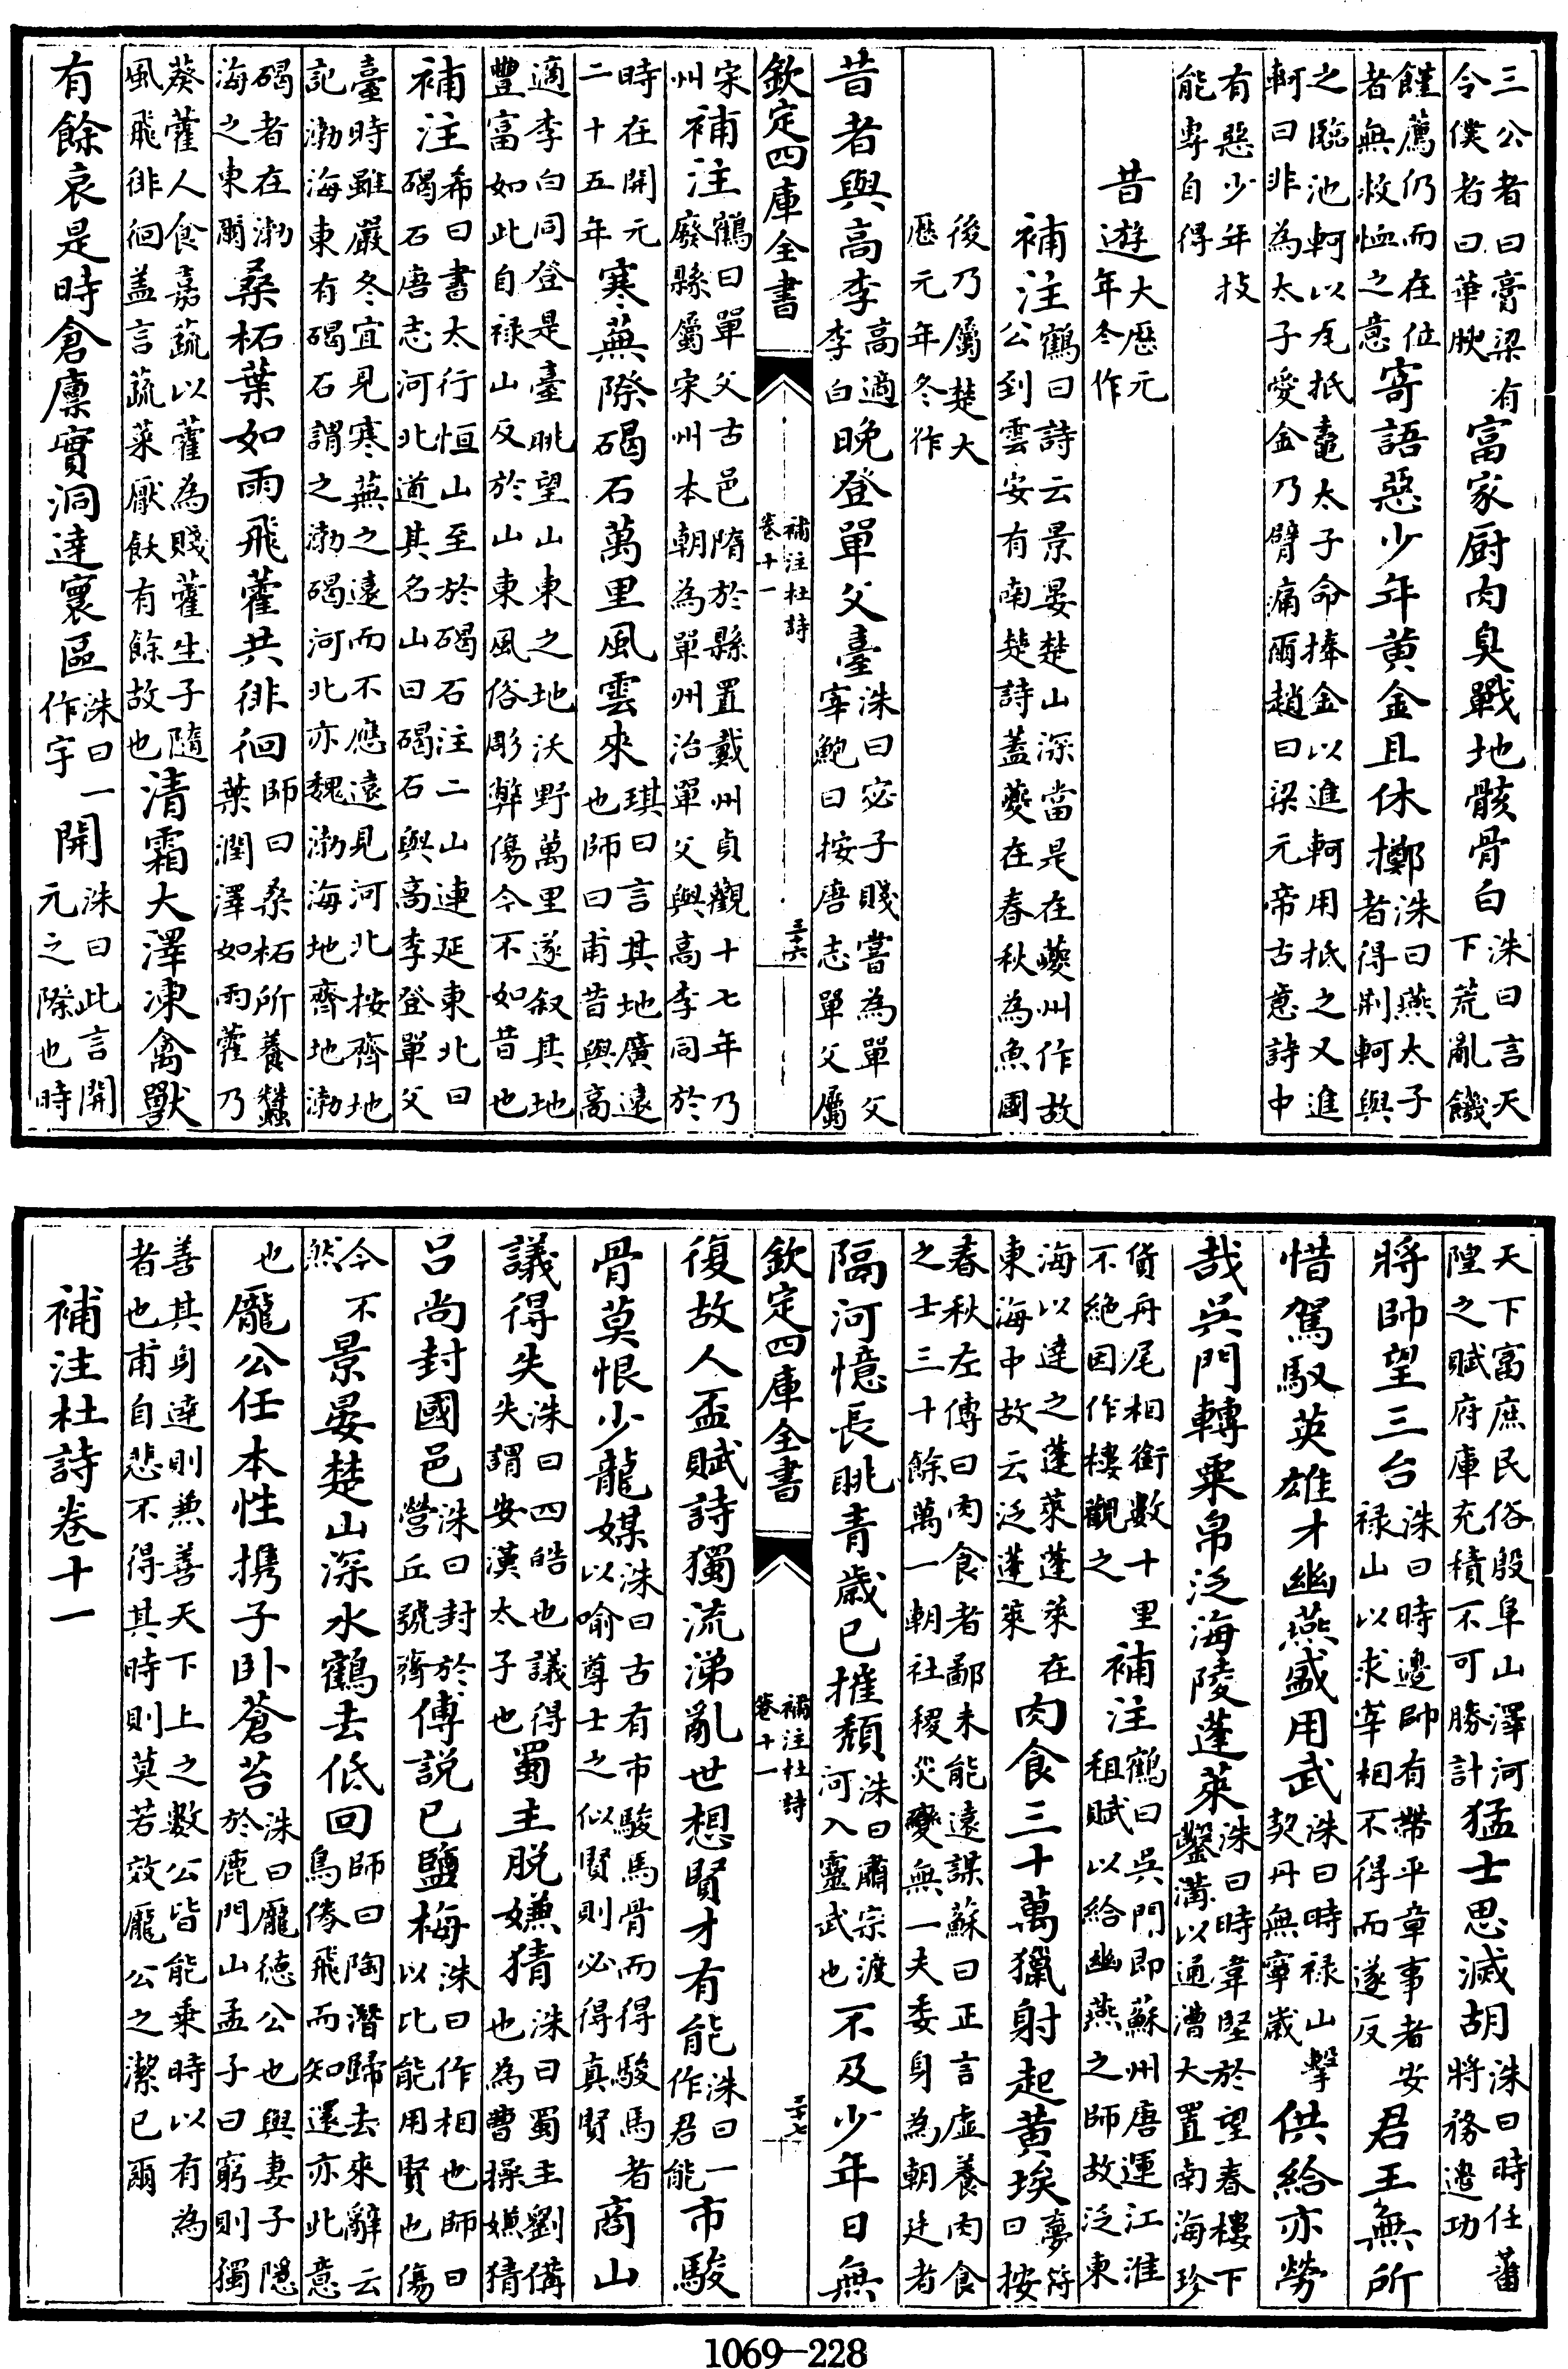 三公者曰膏梁有
令僕者曰華腴
富家厨肉臭戰地骸骨白
洙曰言天
下荒亂饑
饉薦仍而在位
者無救恤之意
寄語惡少年黄金且休擲
洙曰燕太子
者得荆軻與
之臨池軻以瓦抵鼃太子命捧金以進軻用抵之又進
軻曰非為太子愛金乃臂痛爾趙曰梁元帝古意詩中
有惡少年技
能專自得
昔遊
大歷元
年冬作
補注
鶴曰詩云景晏楚山深當是在夔州作故
公到雲安有南楚詩蓋夔在春秋為魚國
後乃屬楚大
歷元年冬作
昔者與高李
高適
李白
晚登單父臺
洙曰宓子賤嘗為單父
宰鮑曰按唐志單父屬
欽定四庫全書
補注杜詩
卷十一
三十六
宋
州
補注
鶴曰單父古邑隋於縣置戴州貞觀十七年乃
廢縣屬宋州本朝為單州治單父與高李同於
時在開元
二十五年
寒蕪際碣石萬里風雲來
琪曰言其地廣遠
也師曰甫昔與高
適李白同登是臺眺望山東之地沃野萬里遂叙其地
豐富如此自禄山反於山東風俗彫弊傷今不如昔也
補注
希曰書太行恒山至於碣石注二山連延東北曰
碣石唐志河北道其名山曰碣石與高李登單父
臺時雖嚴冬宜見寒蕪之遠而不應遠見河北按齊地
記渤海東有碣石謂之渤碣河北亦魏渤海地齊地渤
碣者在渤
海之東爾
桑柘葉如雨飛藿共徘徊
師曰桑柘所養蠶
葉潤澤如雨藿乃
葵藿人食嘉蔬以藿為賤藿生子隨
風飛徘徊盖言蔬菜厭飫有餘故也
清霜大澤凍禽獸
有餘哀是時倉廩實洞達寰區
洙曰一
作宇
開
洙曰此言開
元之際也時
天下富庶民俗殷阜山澤河
隍之賦府庫充積不可勝計
猛士思滅胡
洙曰時任蕃
將務邊功
將帥望三台
洙曰時邊帥有帶平章事者安
禄山以求宰相不得而遂反
君王無所
惜駕馭英雄才幽燕盛用武
洙曰時禄山擊
契丹無寧歲
供給亦勞
哉吳門轉粟帛泛海陵蓬萊
洙曰時韋堅於望春樓下
鑿溝以通漕大置南海珍
貨舟尾相銜數十里
不絶因作樓觀之
補注
鶴曰吳門即蘇州唐運江淮
租賦以給幽燕之師故泛東
海以達之蓬萊蓬萊在
東海中故云泛蓬萊
肉食三十萬獵射起黄埃
夢符
曰按
春秋左傳曰肉食者鄙未能遠謀蘇曰正言虚養肉食
之士三十餘萬一朝社稷災變無一夫委身為朝廷者
隔河憶長眺青歲已摧頽
洙曰肅宗渡
河入靈武也
不及少年日無
欽定四庫全書
補注杜詩
卷十一
三十七
復故人盃賦詩獨流涕亂世想賢才有能
洙曰一
作君能
市駿
骨莫恨少龍媒
洙曰古有市駿馬骨而得駿馬者
以喻尊士之似賢則必得真賢
商山
議得失
洙曰四皓也議得
失謂安漢太子也
蜀主脱嫌猜
洙曰蜀主劉備
也為曹操嫌猜
吕尚封國邑
洙曰封於
營丘號齊
傅説已鹽梅
洙曰作相也師曰
以比能用賢也傷
今不
然
景晏楚山深水鶴去低回
師曰陶潛歸去來辭云
鳥倦飛而知還亦此意
也
龐公任本性携子卧蒼苔
洙曰龐德公也與妻子隱
於鹿門山孟子曰窮則獨
善其身達則兼善天下上之數公皆能乘時以有為
者也甫自悲不得其時則莫若效龐公之潔已爾
補注杜詩卷十一
1069-228